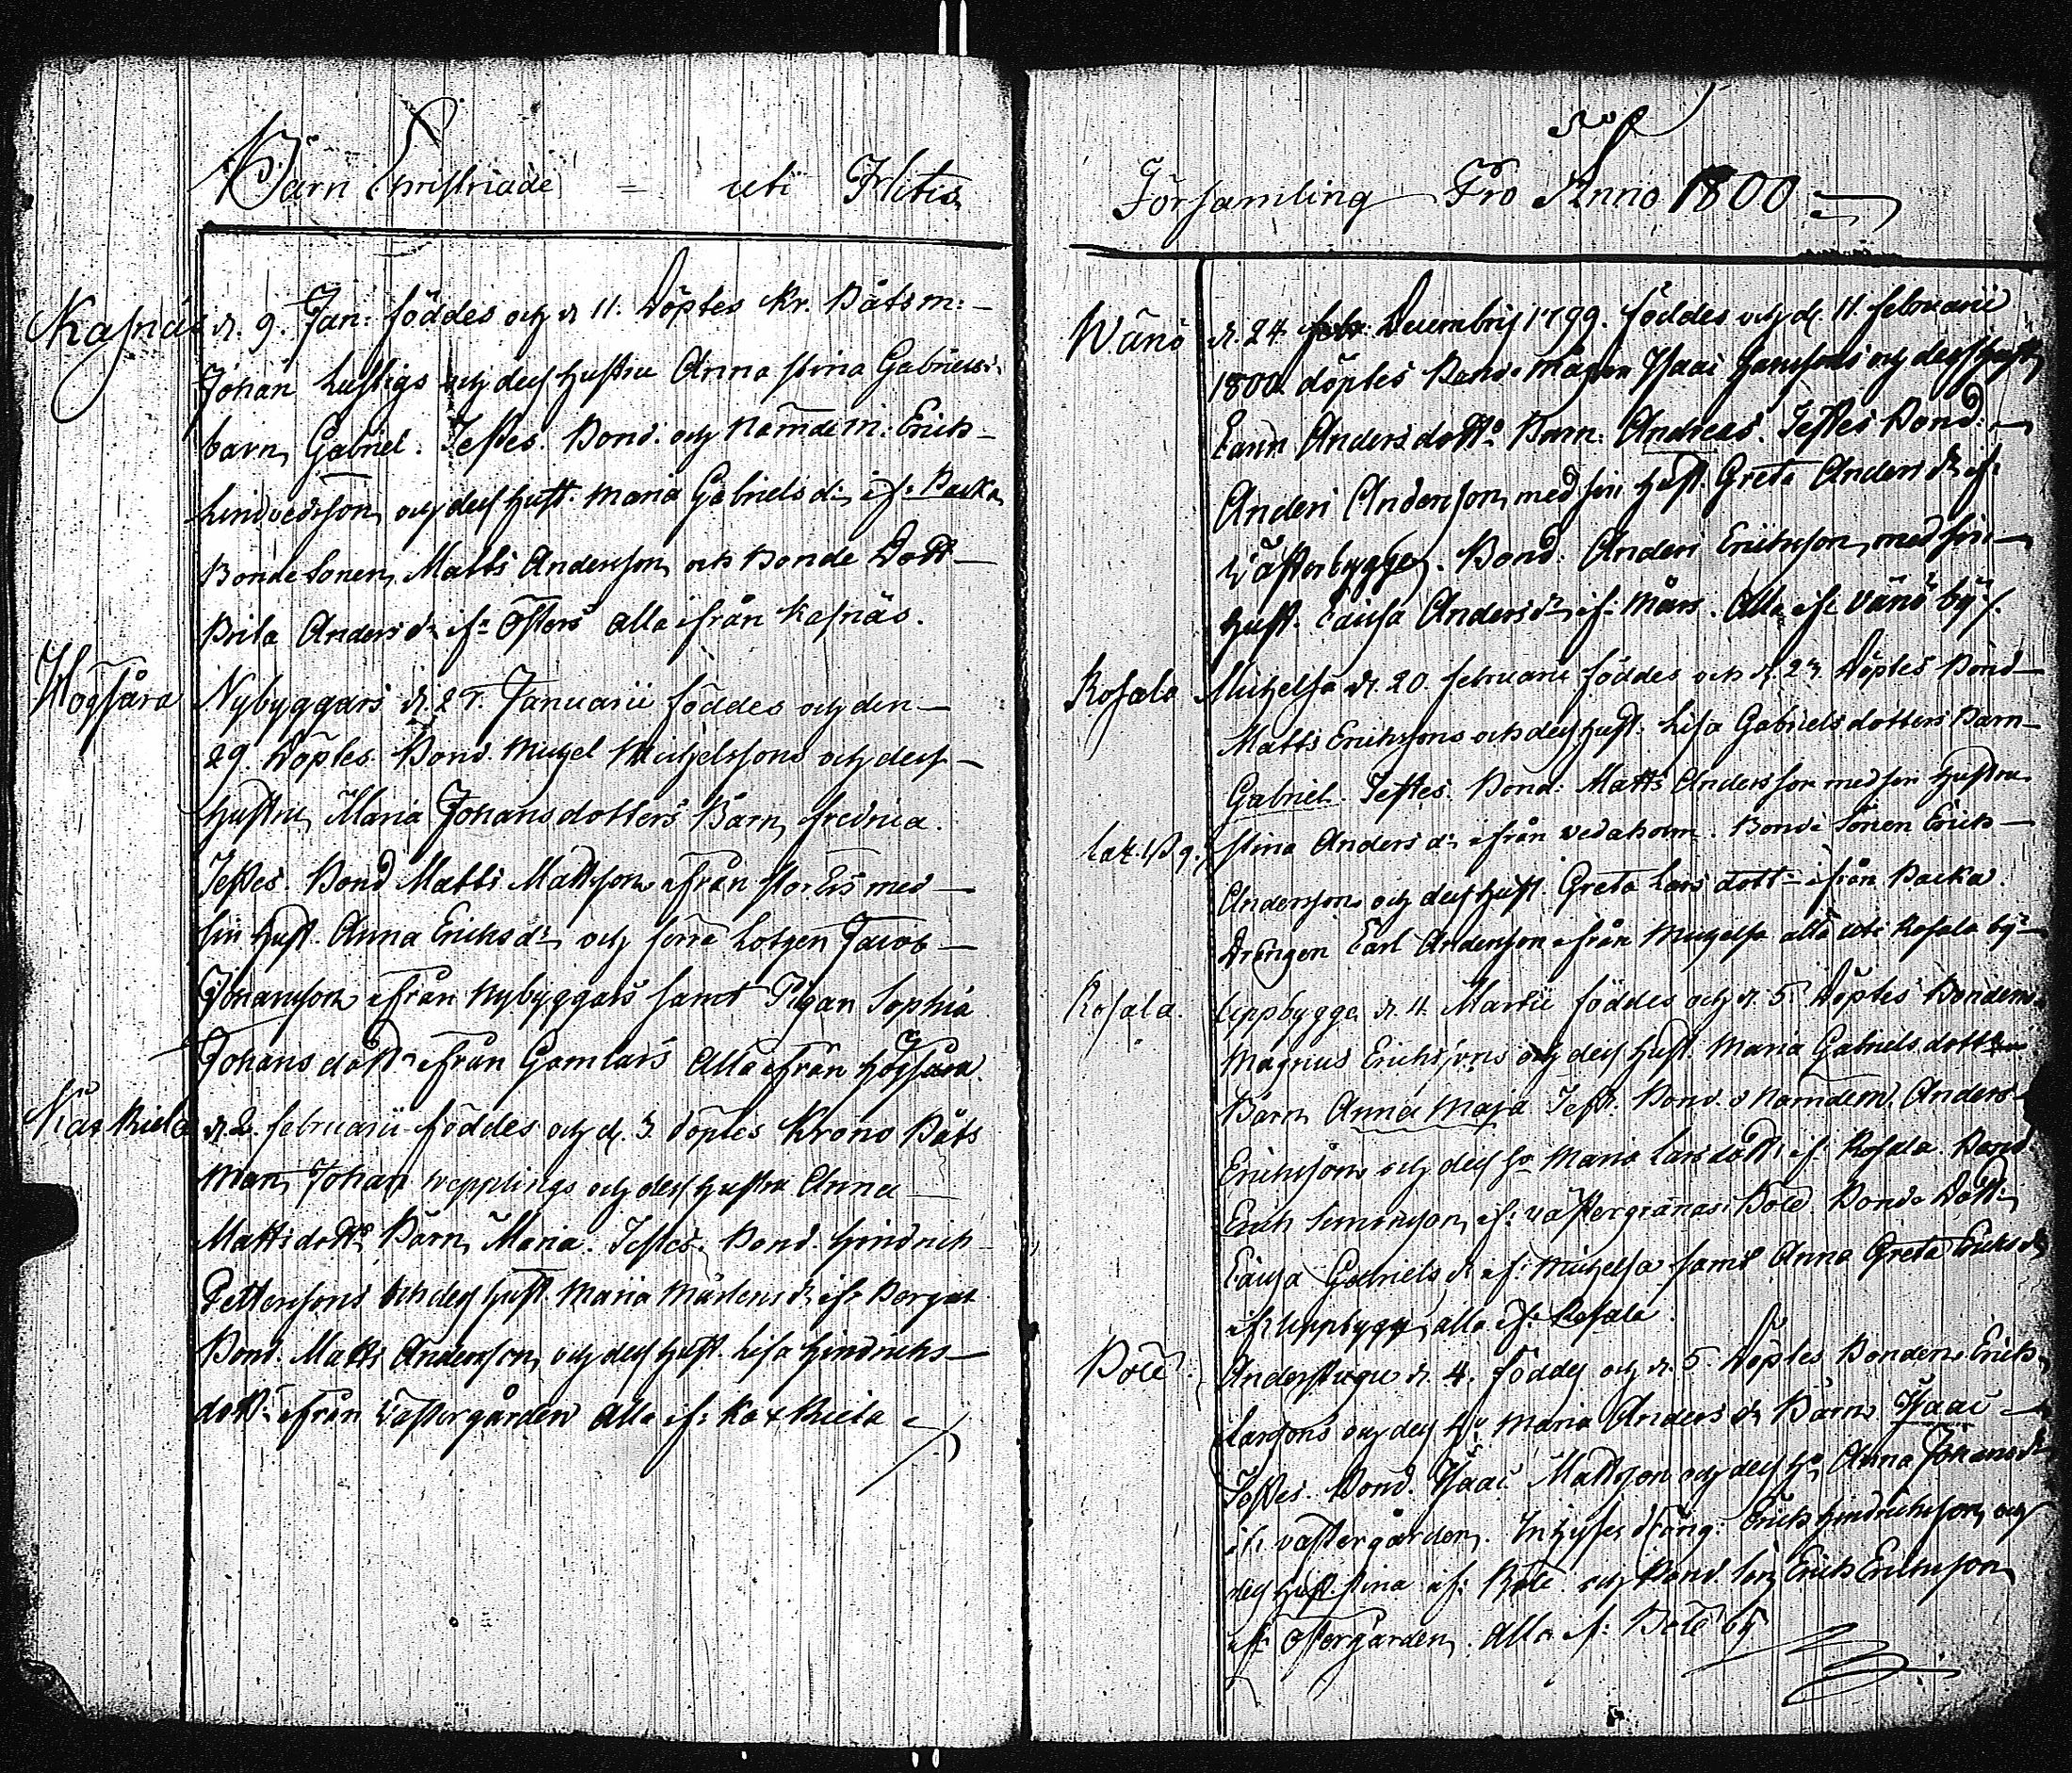 Barn Christnade = uti Hitis
Kasnäs d. 9. Jan: föddes och d 11. döptes Kr. Båtsm:
Johan Lustigs och dess hustru Anna Stina Gabriels:
barn Gabriel. Testes. Bond. och Nämdem: Erich
Lindvedsson och dess hust. Maria Gabriels d:r if: Backa
Bonde Sonen Matts Andersson och Bonde Dott
Brita Anders d:r if: Österš alla ifrån Kasnäs.
Högsåra Nybyggars d. 27. Januarii föddes och den
29. Döptes Bond. Michel Michelssons och dess
hustru Maria Johans dotters Barn Fredrica.
Testes. Bond Matts Mattsson ifrån Stor Ers med
sin hust. Anna Erichs d:r och förra Lotzen Jacob
Johansson ifrån Nybyggars samt Pigan Sophia
Johans dott:r ifrån Gamlars Alla ifrån Högsåra.
d. 2. februarii föddes och d. 3. döptes Krono Båts
man Johan Wepplings och dess hustru Anna
Mattsdott:s Barn Maria. Testes. Bond. Hindrich
Petterssons och dess hust. Maria Mårtens d:r if:
Bond. Matts Andersson och dess hust. Lisa Hindrichs
dott:r ifrån Västergården alla if:
Församling Pro Anno 1800
Wänö d. 24. Decembris 1799. föddes och d. 11. februarii
1800. döptes Bonde mågen Isaac Hanssons och dess hust
Carin Anders dott:s Barn: Andreas. Testes Bond:
Anders Andersson med sin hust. Greta Anders d:r if:
Västerbygge. Bond: Anders Erichsson med sin
hust. Caisa Anders d:r if: Mårs. Alla if: Vänö by
Rosala Michelsa d. 20. februarii föddes och d. 23. Döptes Bond
Matts Erichssons och dess hust: Lisa Gabriels dotters Barn
Gabriel. Testes. Bond: Matts Andersson med sin hustru
Stina Anders d:r ifrån Vedaholm. Bonde Sonen Erich
Anderssons och dess hust. Greta Lars dott:r ifrån Backa.
Drengen Carl Andersson ifrån Michelsa alla uti Rosala by
Rosala. Uppbygge d. 4. Martii föddes och d. 5. Döptes Bondens
Magnus Erichssons och dess hust. Maria Gabriels dotters
Barn Anna Maja Test. Bond. o Nämdem. Anders
Erichssons och dess h:u Maria Lars dott: if: Rosala. Bond.
Erich Simonsson if: Västergrannas Böle. Bonde Dott:
Caisa Gabriels d:r if: Michelsa samt Anna Greta Erichs d:r
if: Uppbygg alla if: Rosala.
Böle Anderstugu d. 4. föddes och d. 5. Döptes Bondens Erich
Larssons och dess h:u Maria Anders d:r Barn Isaac
Testes. Bond. Isaac Mattsson och dess h:u Anna Johans d:r
if: Västergården. Inhyses dräng: Erich Hindrichsson och
dess hust. Stina if: Böle och Bond. Son Erich Erichsson
if: Östergården. Alla if: Böle by